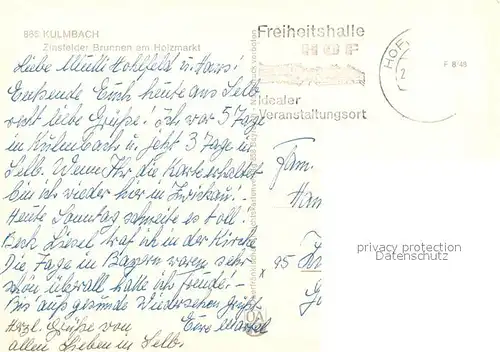 865 KULMBACH
Zinsfelder Brunnen am Holzmarkt
Freiheitshalle
HOF
Idealer
Veranstaltungsort
HOF
2
Liebe Mutti Hohlfeld u. Hans!
Entsende Euch heute aus Selb
recht liebe Grüße! Ich war 5 Tage
in Kulmbach u. jetzt 3 Tage in
Selb. Wenn Ihr die Karte erhaltet
bin ich wieder hier in Zwickau! -
Heute Sonntag schneite es toll!
Liesel traf ich in der Kirche
Die Tage in Bayern waren sehr
schön überall hatte ich Freude! -
Bis auf's gesunde Wiedersehen grüßt
Herzl. Grüße von Eure
allen Lieben in Selb.
Fam.
Han
x 95
privacy protection
Datenschutz